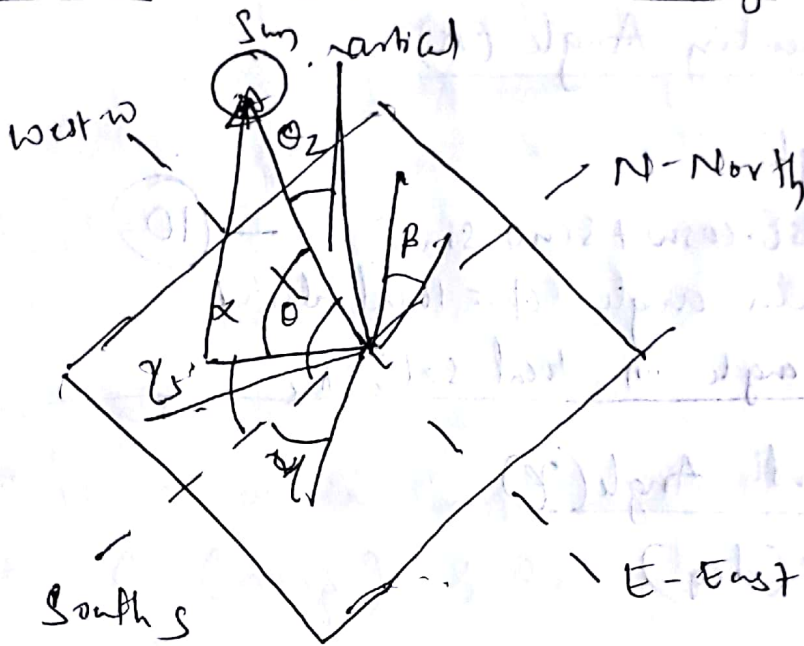 Sun
vertical
West W
θz
N - North
β
α
θ
γs
γ
South S
E - East